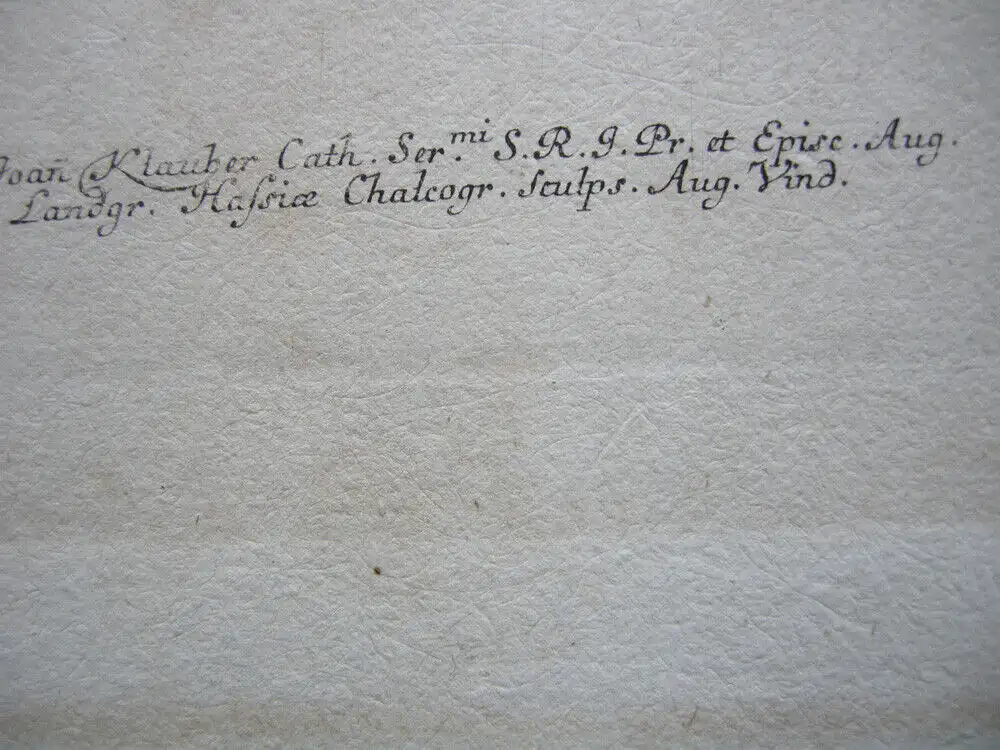 Joan̄ Klauber Cath. Ser.mi S. R. I. Pr. et Episc. Aug.
Landgr. Haſsiæ Chalcogr. Sculps. Aug. Vind.